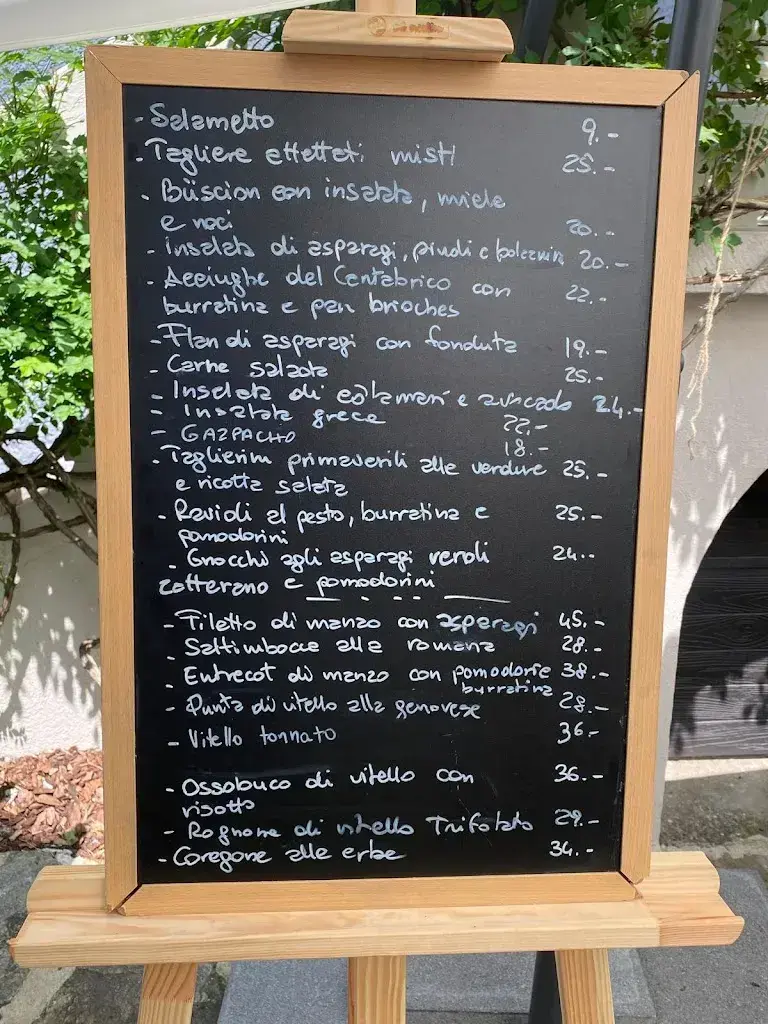 - Salametto 9.-
- Tagliere affettati misti 25.-
- Büscion con insalata, miele
e noci 20.-
- Insalata di asparagi, pinoli e 20.-
- Acciughe del Cantabrico con 22.-
burratina e pan brioches
- Flan di asparagi con fonduta 19.-
- Carne salada 25.-
- Insalata di calamari e avocado 24.-
- Insalata greca 22.-
- GAZPACHO 18.-
- Taglierini primaverili alle verdure 25.-
e ricotta salata
- Ravioli al pesto, burratina e 25.-
pomodorini
- Gnocchi agli asparagi verdi 24.-
zafferano e pomodorini
- Filetto di manzo con asparagi 45.-
- Saltimbocca alla romana 28.-
- Entrecot di manzo con pomodori e 38.-
burratina
- Punta di vitello alla genovese 28.-
- Vitello tonnato 36.-
- Ossobuco di vitello con 36.-
risotto
- Rognone di vitello Trifolato 29.-
- Coregone alle erbe 34.-